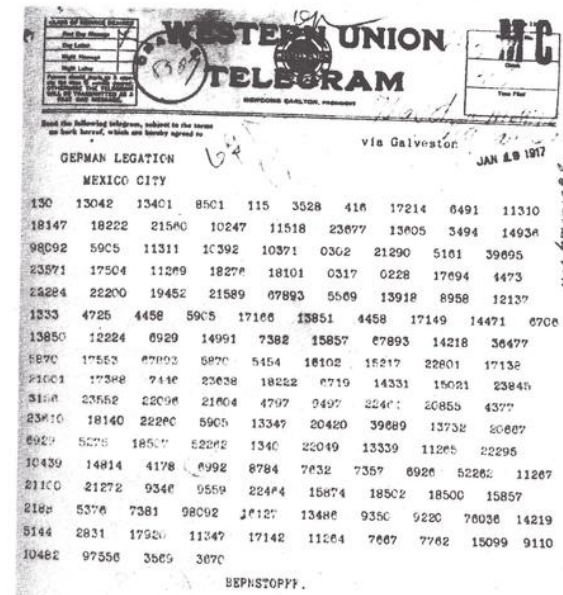 CLASS OF SERVICE DESIRED
Fast Day Message
Day Letter
Night Message
Night Letter
WESTERN UNION
TELEGRAM
NEWCOMB CARLTON, PRESIDENT
Time Filed
Send the following telegram, subject to the terms
on back hereof, which are hereby agreed to
via Galveston
JAN 19 1917
GERMAN LEGATION
MEXICO CITY
130 13042 13401 8501 115 3528 416 17214 6491 11310
18147 18222 21560 10247 11518 23677 13605 3494 14936
98092 5905 11311 10392 10371 0302 21290 5161 39695
23571 17504 11269 18276 18101 0317 0228 17694 4473
22284 22200 19452 21589 67893 5569 13918 8958 12137
1333 4725 4458 5905 17166 13851 4458 17149 14471 6706
13850 12224 6929 14991 7382 15857 67893 14218 36477
5870 17553 67893 5870 5454 16102 15217 22801 17138
21001 17388 7446 23638 18222 6719 14331 15021 23845
3156 23552 22096 21604 4797 9497 22464 20855 4377
23610 18140 22260 5905 13347 20420 39689 13732 20667
6929 5275 18507 52262 1340 22049 13339 11265 22295
10439 14814 4178 6992 8784 7632 7357 6926 52262 11267
21100 21272 9346 9559 22464 15874 18502 18500 15857
2188 5376 7381 98092 16127 13486 9350 9220 76036 14219
5144 2831 17920 11347 17142 11264 7667 7762 15099 9110
10482 97556 3569 3670
BEPNSTOPFF.